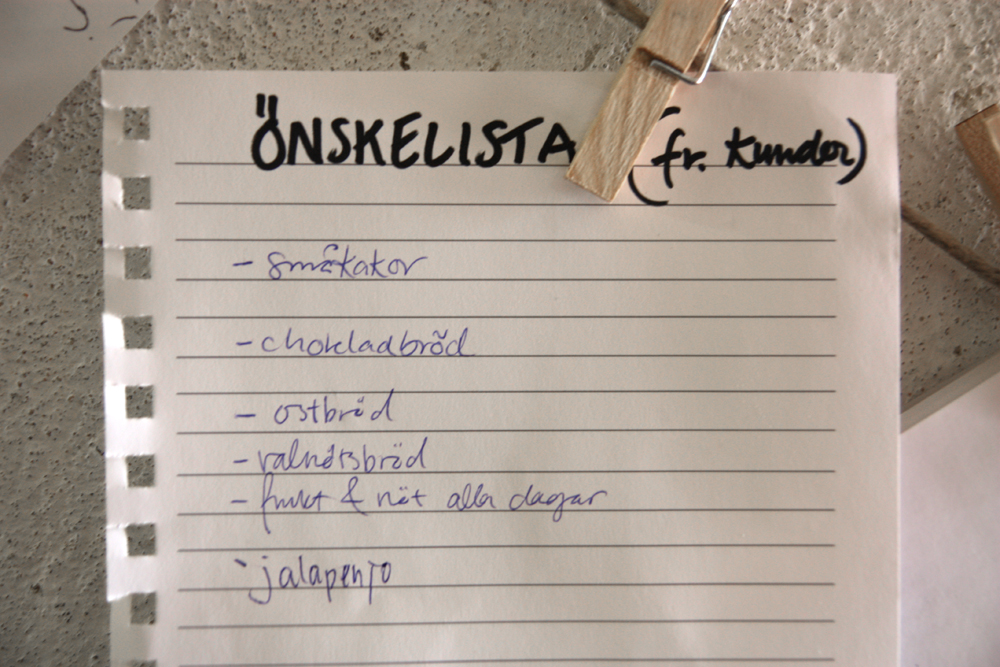 ÖNSKELISTA (fr. kunder)
- småkakor
- chokladbröd
- ostbröd
- valnötsbröd
- frukt & nöt alla dagar
- jalapenjo